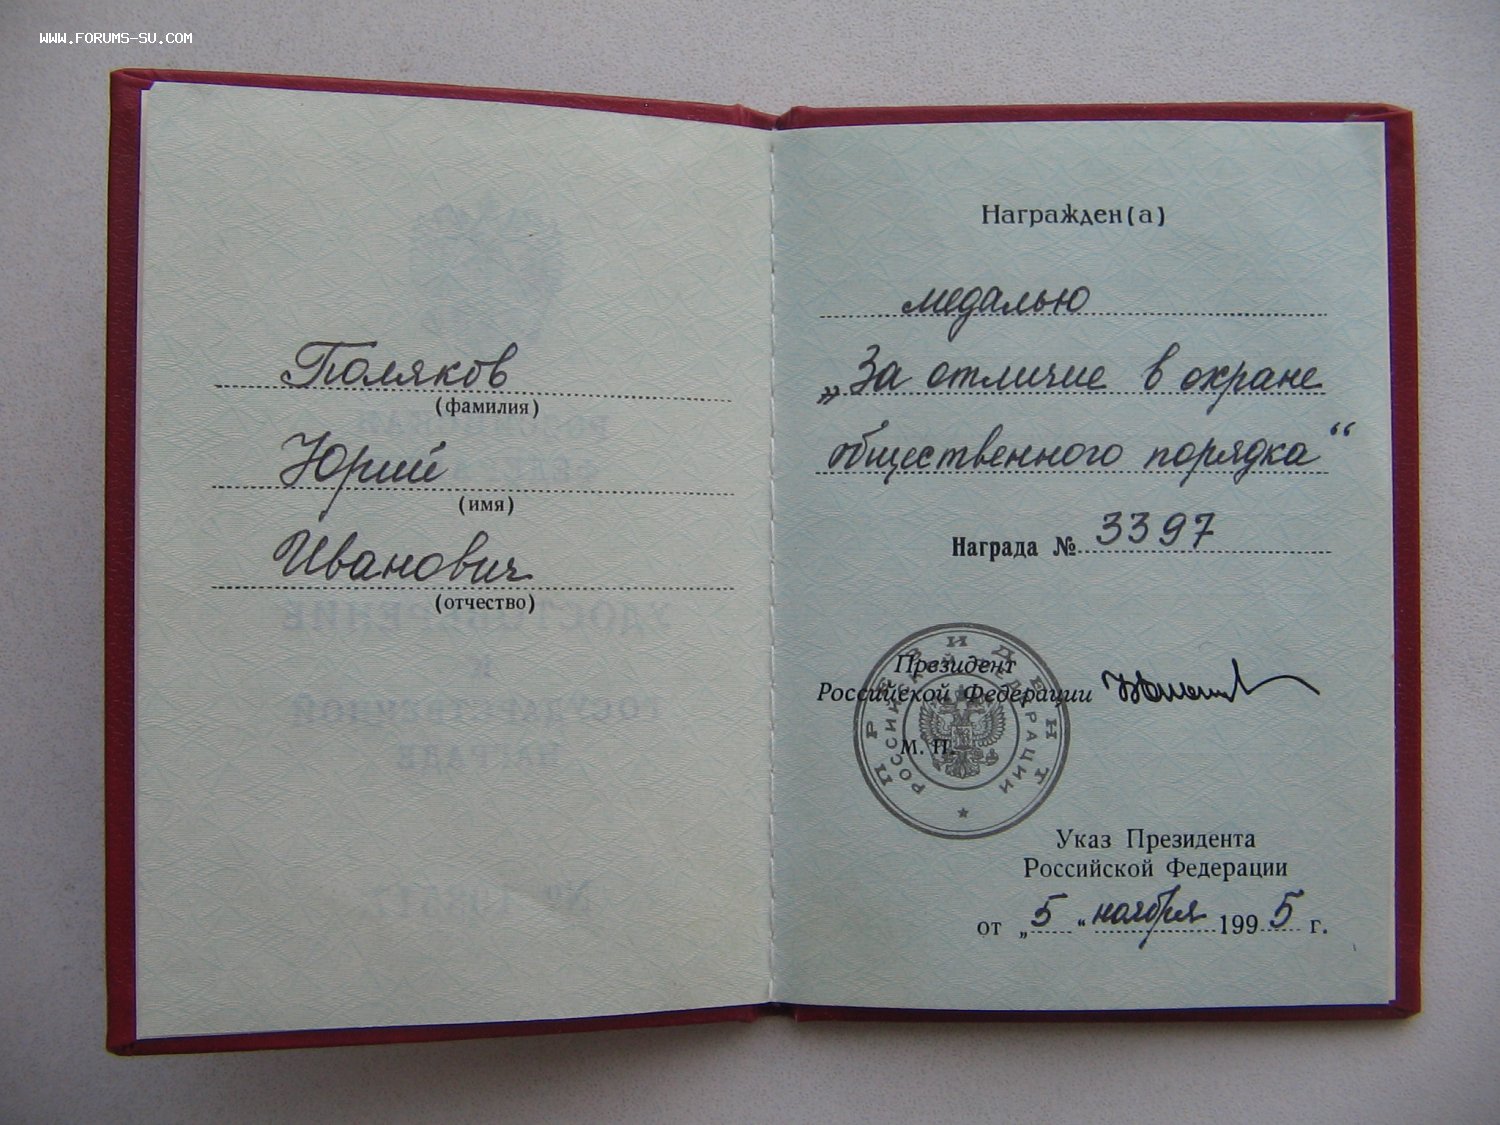 WWW.FORUMS-SU.COM
Поляков
(фамилия)
Юрий
(имя)
Иванович
(отчество)
Награжден(а)
медалью
„За отличие в охране
общественного порядка“
Награда № 3397
Президент
Российской Федерации
М. П.
ПРЕЗИДЕНТ
РОССИЙСКОЙ ФЕДЕРАЦИИ
Указ Президента
Российской Федерации
от „5“ ноября 1995 г.